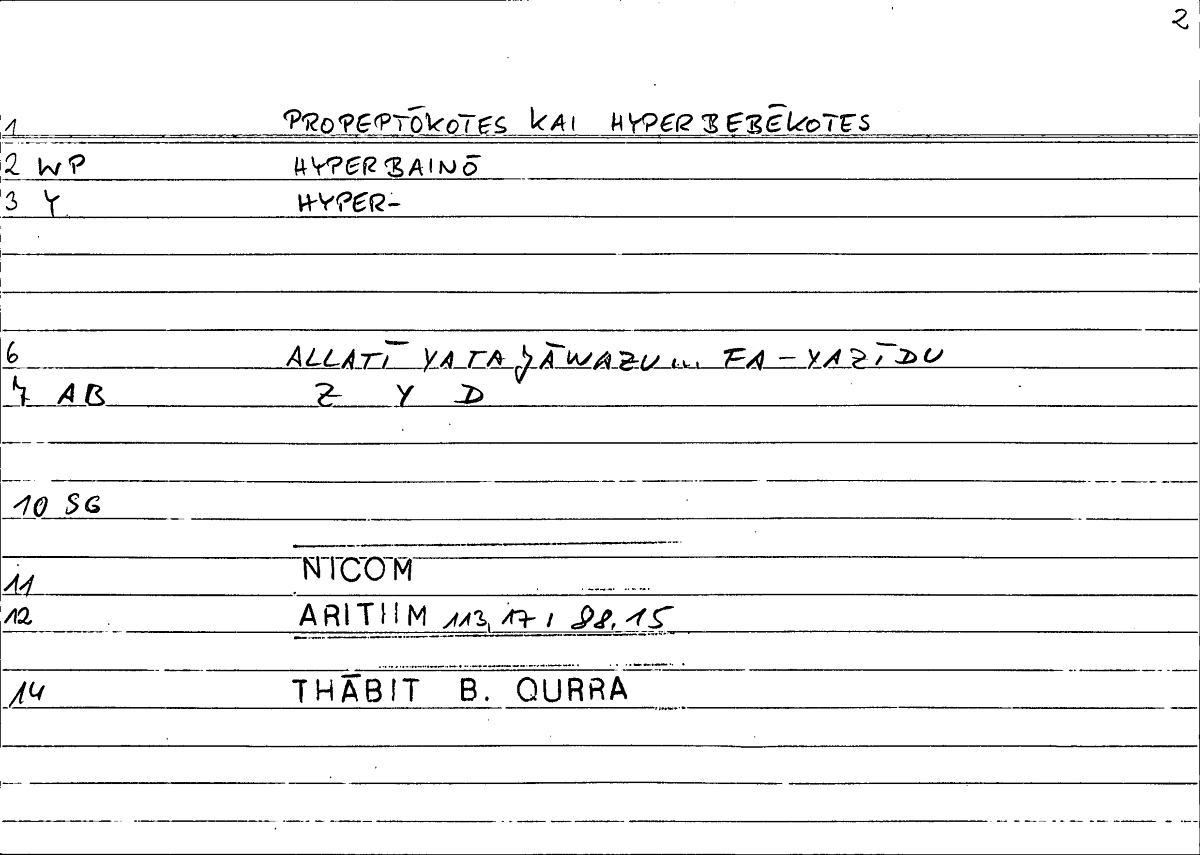 2
1 PROPEPTŌKOTES KAI HYPERBEBĒKOTES
2 WP HYPERBAINŌ
3 Y HYPER-
6 ALLATĪ YATAJĀWAZU... FA-YAZĪDU
7 AB Z Y D
10 SG
11 NICOM
12 ARITHM 113,17; 88,15
14 THĀBIT B. QURRA